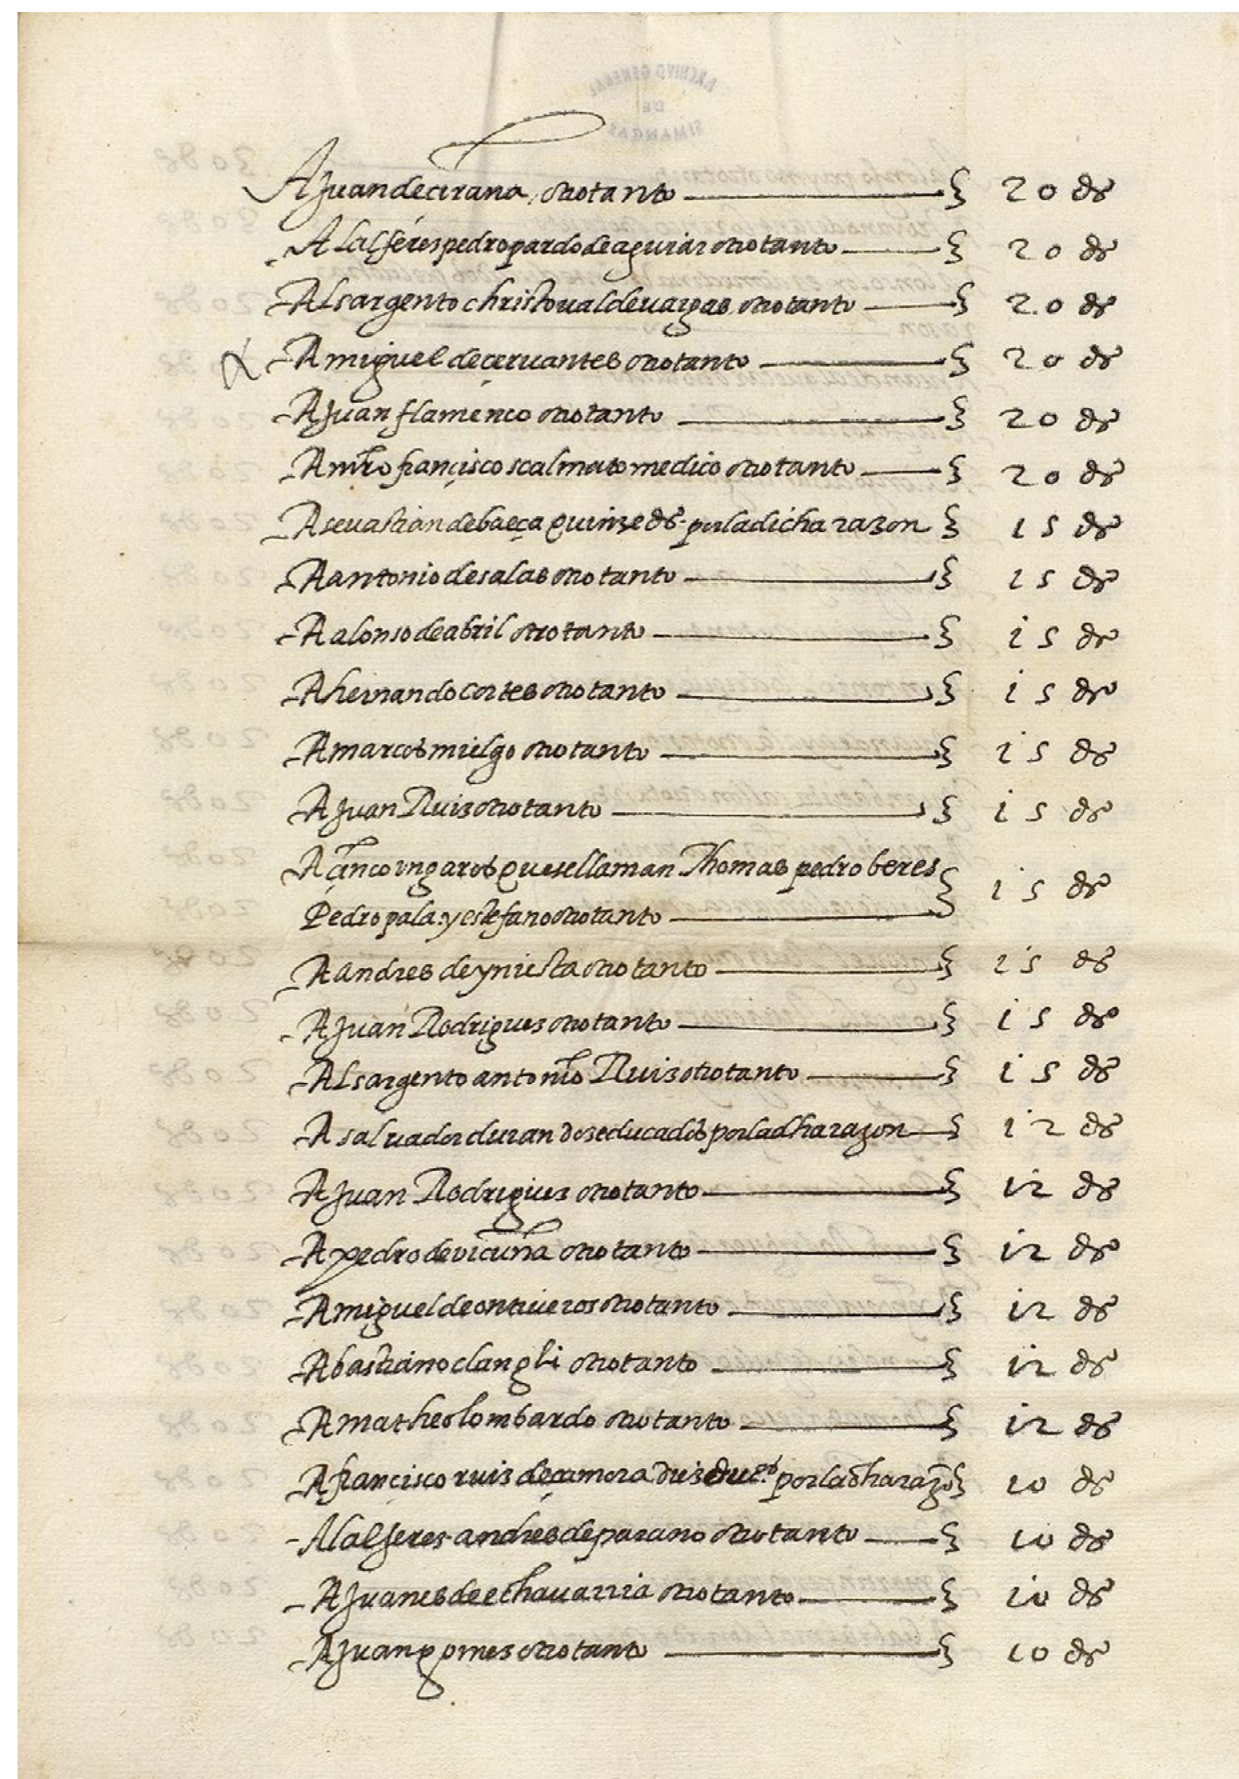 A Juan decirana, otrotanto 20 ds
Al alferes pedro pardo de aguiar otrotanto 20 ds
Al sargento christoual de uargas otrotanto 20 ds
A miguel de ceruantes otrotanto 20 ds
A Juan flamenco otrotanto 20 ds
A mro francisco scalmato medico otrotanto 20 ds
A seuastian de baeça quinze ds por la dicha razon 15 ds
A antonio de salas otro tanto 15 ds
A alonso de abril otro tanto 15 ds
A hernando cortes otrotanto 15 ds
A marcos mielgo otrotanto 15 ds
A Juan Ruiz otrotanto 15 ds
A cinco ungaros que se llaman Thomas pedro beres
Pedro pala y estefano otrotanto 15 ds
A andres de yniesta otrotanto 15 ds
A Juan Rodrigues otrotanto 15 ds
Al sargento antonio Ruiz otrotanto 15 ds
A saluador duran doze ducados por la dha razon 12 ds
A Juan Rodriguez otrotanto 12 ds
A pedro de vicuña otrotanto 12 ds
A miguel de ontiueros otrotanto 12 ds
A bastiano clangli otrotanto 12 ds
A matheo lombardo otrotanto 12 ds
A francisco ruiz de çamora diez ducs por la dha razon 10 ds
Al alferes andres de parano otrotanto 10 ds
A Juanes de echauarria otrotanto 10 ds
A Juan gomes otrotanto 10 ds
ARCHIVO GENERAL
DE
SIMANCAS